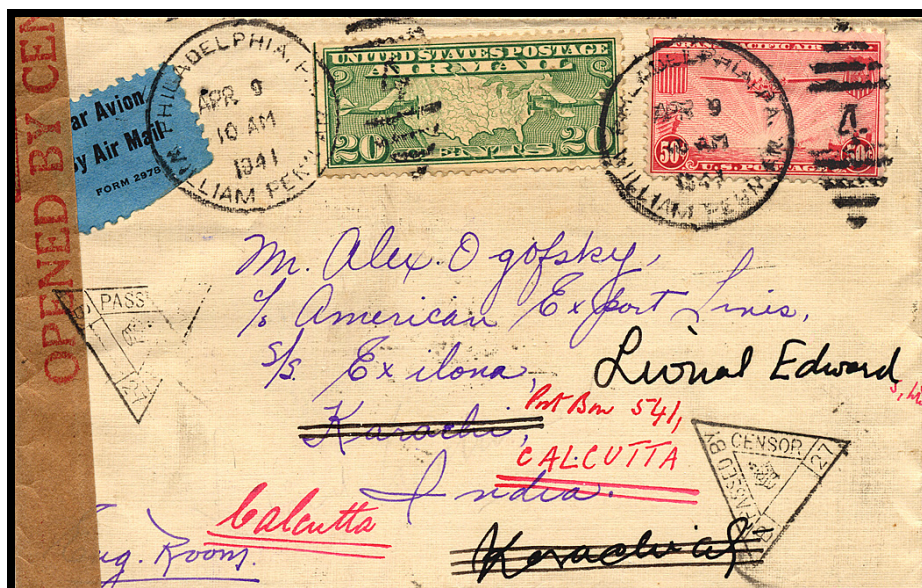 OPENED BY CEN
ar Avion
y Air Mail
FORM 2978
PHILADELPHIA, P
APR 9
10 AM
1941
WILLIAM PEN
UNITED STATES POSTAGE
AIR MAIL
20 CENTS 20
PHILADELPHIA, PA.
APR 9
10 AM
1941
WILLIAM PENN
TRANS-PACIFIC AIR
50¢ U.S. POSTAGE 50¢
Mr. Alex. Ogofsky,
c/o American Export Lines,
S/S. Exilona,
Lional Edward
Karachi,
Post Box 541,
CALCUTTA
India.
Calcutta
Karachi
Room.
PASS
27
PASSED BY
CENSOR
27